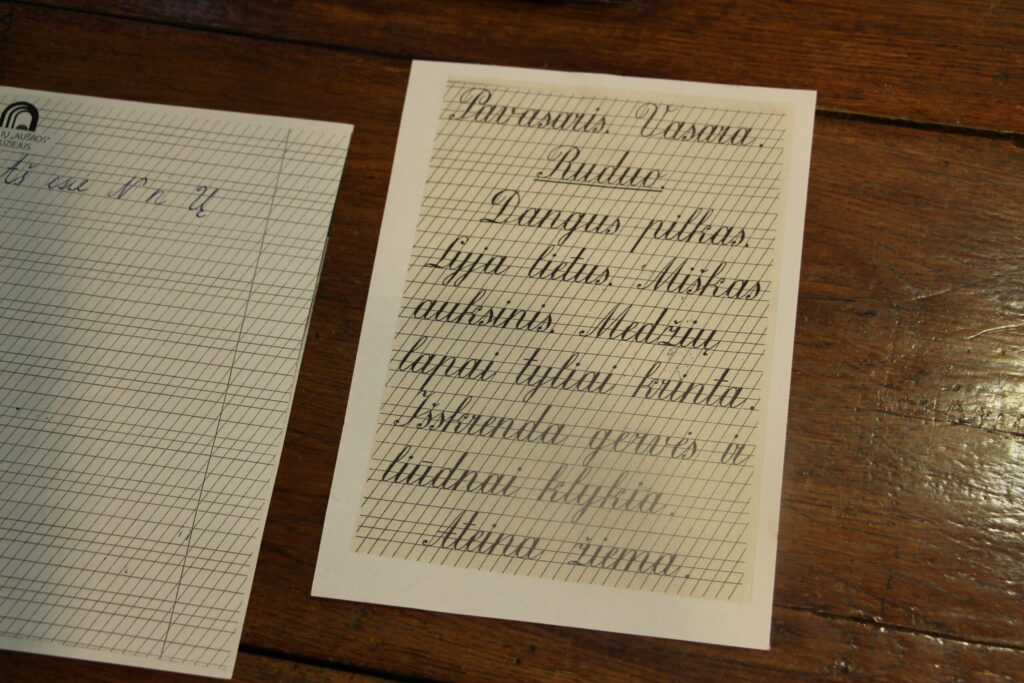 IŲ „AUŠROS"
UZIEJUS
Aš esu N n Ų
Pavasaris. Vasara.
Ruduo.
Dangus pilkas.
Lyja lietus. Miškas
auksinis. Medžių
lapai tyliai krinta.
Išskrenda gervės ir
liudnai klykia.
Ateina žiema.